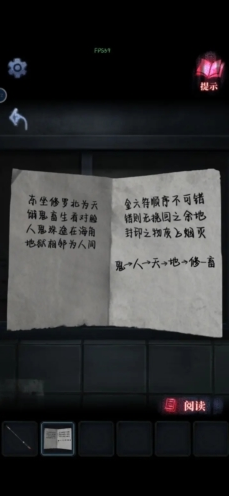 FPS69
提示
东坐修罗北为天
销鬼畜生看对脸
人鬼殊途在海角
地狱相邻为人间
金六符顺序不可错
错则无挽回之余地
封印之物灰飞烟灭
鬼→人→天→地→修→畜
阅读